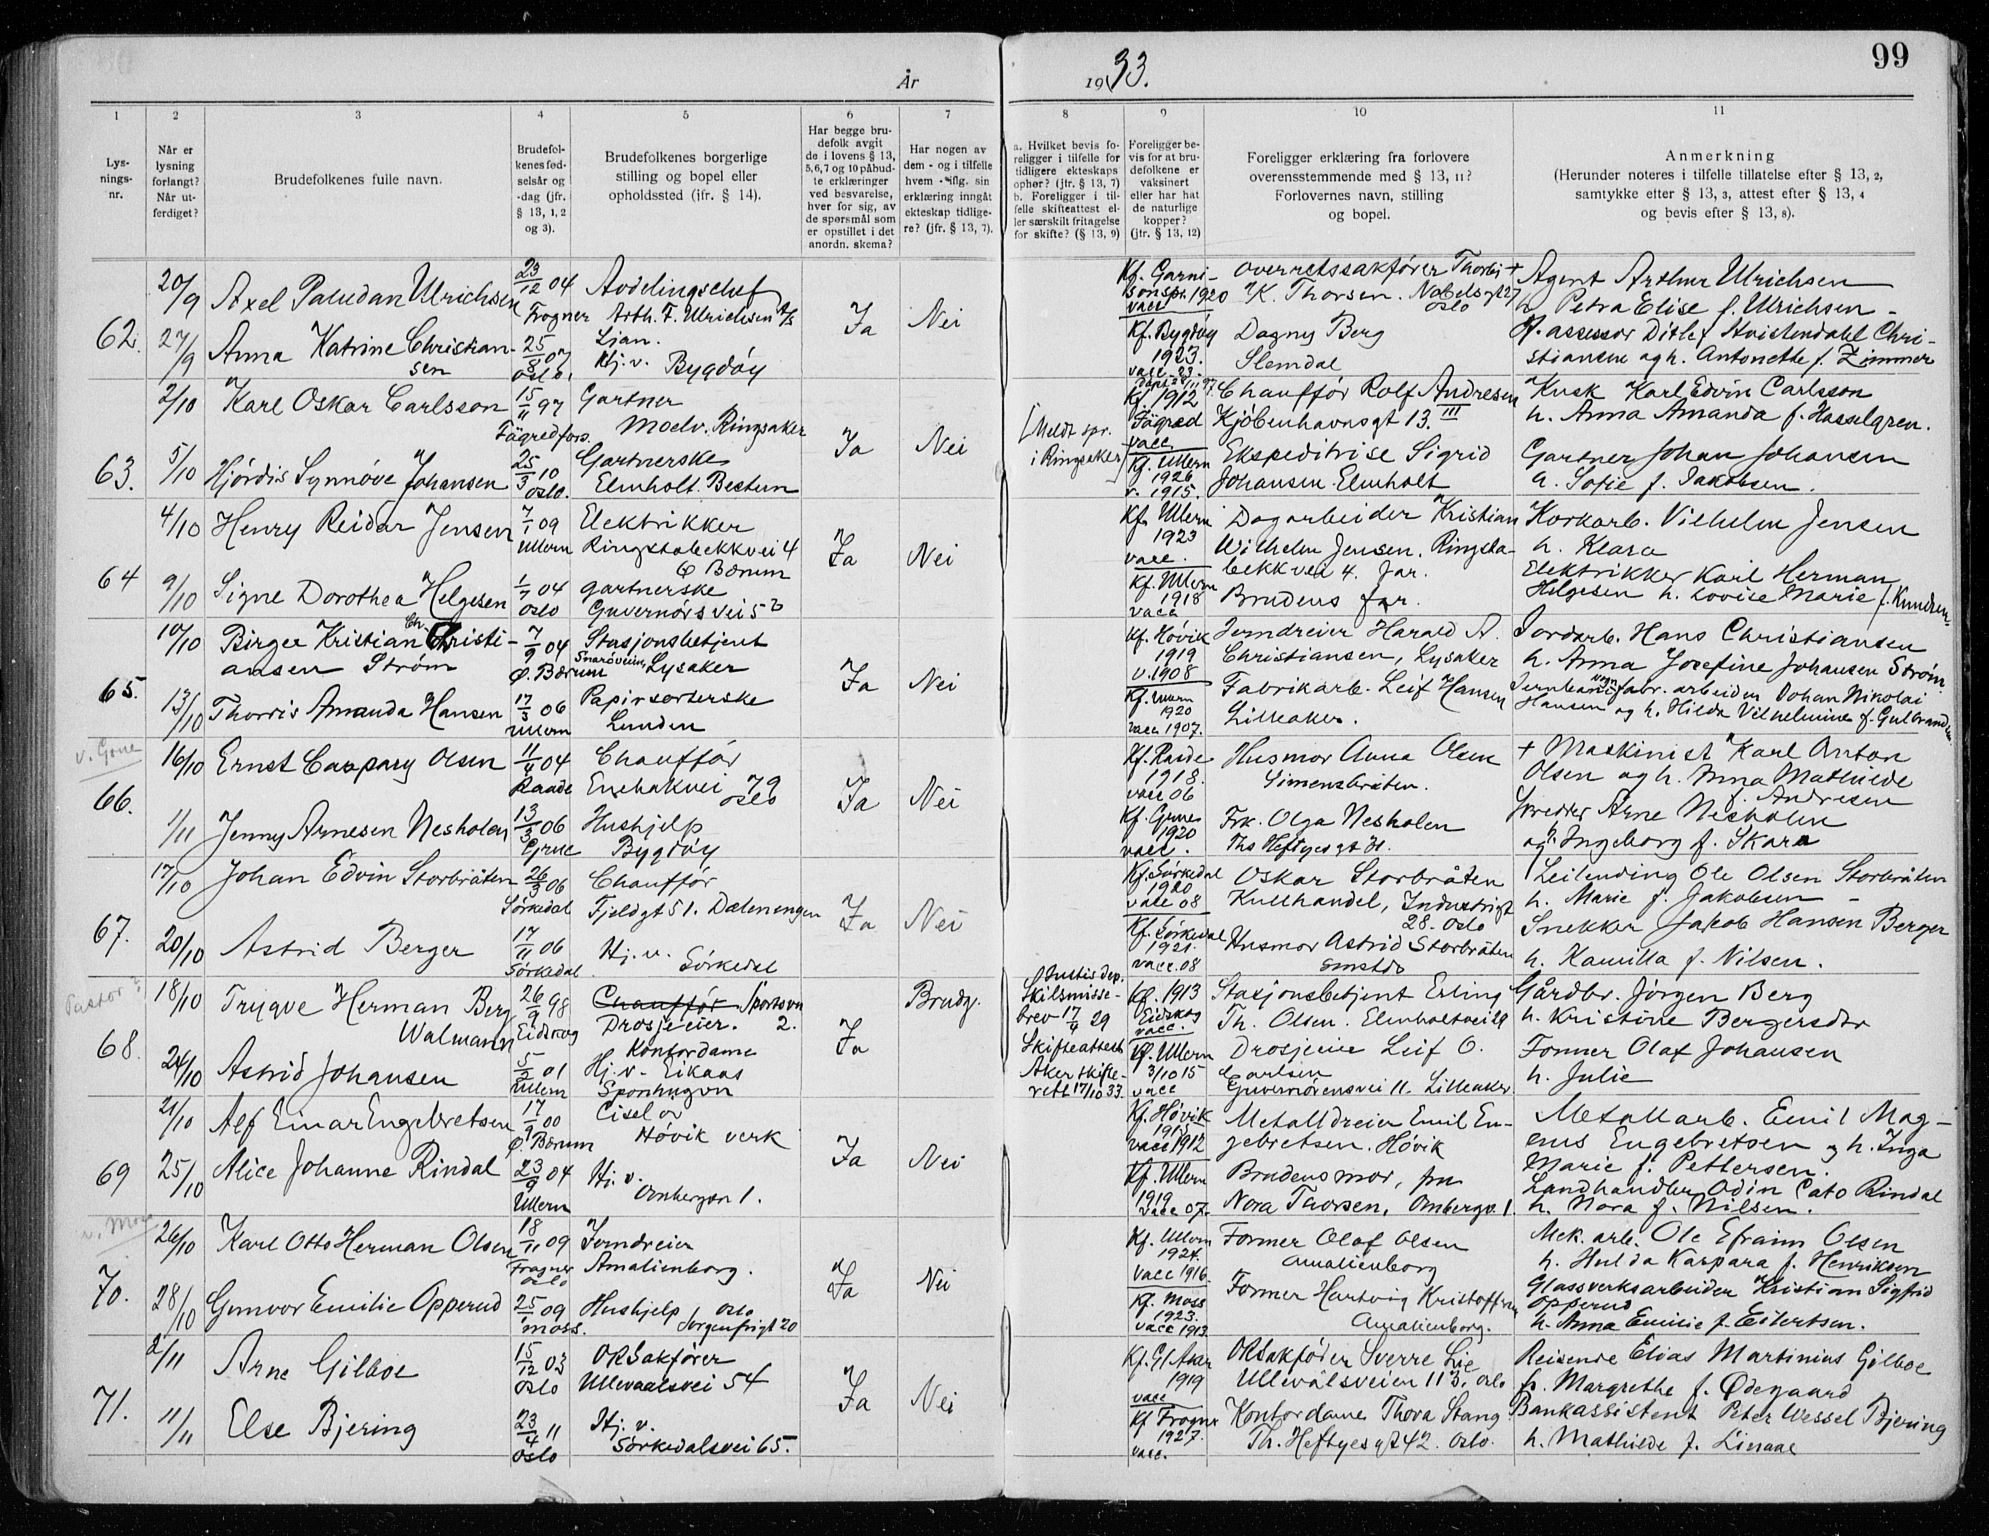 99
År 1933.
1 2 3 4 5 6 7 8 9 10 11
Lys-
nings-
nr.
Når er
lysning
forlangt?
Når ut-
ferdiget?
Brudefolkenes fulle navn.
Brudefol-
kenes fød-
selsår og
-dag (jfr.
§ 13, 1, 2
og 3).
Brudefolkenes borgerlige
stilling og bopel eller
opholdssted (jfr. § 14).
Har begge bru-
defolk avgit
de i lovens § 13,
5,6,7 og 10 påbud-
te erklæringer
ved besvarelse,
hver for sig, av
de spørsmål som
er opstillet i det
anordn. skema?
Har nogen av
dem - og i tilfelle
hvem - iflg. sin
erklæring inngåt
ekteskap tidlige-
re? (jfr. § 13, 7).
a. Hvilket bevis fo-
religger i tilfelle for
tidligere ekteskaps
ophør? (jfr. § 13, 7)
b. Foreligger i til-
felle skifteattest el-
ler særskilt fritagelse
for skifte? (§ 13, 9)
Foreligger be-
vis for at bru-
defolkene er
vaksinert
eller har hat
de naturlige
kopper?
(jfr. § 13, 12)
Foreligger erklæring fra forlovere
overensstemmende med § 13, 11?
Forlovernes navn, stilling
og bopel.
Anmerkning
(Herunder noteres i tilfelle tillatelse efter § 13, 2,
samtykke efter § 13, 3, attest efter § 13, 4
og bevis efter § 13, 8).
62.
20/9 Axel Paludan Ulrichsen
23/12 04 Frogner
Avdelingschef
Arth. F. Ulrichsen A/S
Ljan.
Ja Nei
Kf. Garni-
sonspr. 1920
vacc
Overretssakfører Thorbj
K. Thorsen. Nobelsgt 27
Oslo
+ Agent Arthur Ulrichsen
h. Petra Elise f. Ulrichsen -
27/9 Anna Katrine Christian-
sen
25/8 07 Oslo.
Hj. v. Bygdøy
Kf. Bygdøy
1923.
vacc. 23.
Dagny Berg
Slemdal
assessor Ditlef Hvistendahl Chri-
stiansen og h. Antonette f. Zimmer
63.
2/10 Karl Oskar Carlsson
15/11 97
Fägredfors.
Gartner
Moelv. Ringsaker
Ja Nei
[Meldt spr.
i Ringsaker]
Kf. 1912
Fägred
vacc
Chauffør Rolf Andresen
Kjøbenhavnsgt 13. III
Kusk Karl Edvin Carlsson
h. Anna Amanda f. Hasselgren.
5/10 Hjørdis Synnøve Johansen
25/3 10 Oslo.
Gartnerske
Elmholt. Bestum
Kf. Ullern
1926
v. 1915.
Ekspeditrise Sigrid
Johansen. Elmholt
Gartner Johan Johansen
h. Sofie f. Jakobsen.
64
4/10 Henry Reidar Jensen
7/1 09 Ullern
Elektrikker
Ringstabekkvei 4
Ø Bærum
Ja Nei
Kf. Ullern
1923
vacc.
Dagarbeider Kristian
Wilhelm Jensen. Ringsta-
bekkvei 4. Jar.
Korkarb. Vilhelm Jensen
h. Klara
9/10 Signe Dorothea Helgesen
04 Oslo
gartnerske
Guvernørsvei 5
Kf. Ullern
1918
vacc
Brudens far.
Elektrikker Karl Herman
Helgesen h. Lovice Marie f. Knudsen
65.
10/10 Birger Kristian Christi-
ansen Strøm
7/9 04 Ø. Bærum
Stasjonsbetjent
Snarøveien, Lysaker
Ja Nei
Kf. Høvik
1919
v. 1908
Jerndreier Harald A.
Christiansen, Lysaker
Jordarb. Hans Christiansen
h. Anna Josefine Johansen Strøm
13/10 Thorris Amanda Hansen
17/3 06 Ullern
Papirsorterske
Lunden
Kf. Ullern
1920
vacc 1907.
Fabrikarb. Leif Hansen
Lilleaker.
Jernbanevognfabr. arbeider Johan Nikolai
Hansen og h. Hilda Vilhelmine f. Gulbrandsen
v. Grue
66.
16/10 Ernst Caspary Olsen
11/4 04 Raade
Chauffør
Enebakvei 79
Oslo
Ja Nei
Kf. Raade
1918.
vacc 06
Husmor Anna Olsen
Simensbråten.
+ Maskinist Karl Anton
Olsen og h. Anna Mathilde
f. Andresen
1/11 Jenny Arnesen Nesholen
13/3 06 Grue
Hushjelp
Bygdøy
Kf. Grue
1920
vacc.
Frk. Olga Nesholen
Ths Heftyesgt
Arne Nesholen
og h. Ingeborg f. Skara
67.
17/10 Johan Edvin Storbråten
26/3 06 Sørkedal
Chauffør
Fjeldgt 51. Dælenengen
Ja Nei
Kf. Sørkedal
1920
vacc 08
Oskar Storbråten
Kullhandel, Industrigt
28. Oslo
Leilending Ole Olsen Storbråten
h. Marie f. Jakobsen -
20/10 Astrid Berger
17/11 06 Sørkedal
Hj. v. Sørkedal
Kf. Sørkedal
1921.
vacc. 08
Husmor Astrid Storbråten
smstds
Snekker Jakob Hansen Berger
h. Kamilla f. Nilsen.
Pastor
68.
18/10 Trygve Herman Berg
Walmann
26/9 98 Eidskog
Chauffør Sportsvn
Drosjeeier. 2.
Ja Brudg.
Justisdep.
Skilsmisse-
brev 17/4 29
Skifteattest
Aker skifte-
rett 17/10 33.
Kf. 1913
Eidskog
vacc.
Stasjonsbetjent Erling
Th. Olsen. Elmholtvei 19
Gårdbr. Jørgen Berg
h. Kristine Bergersdtr
24/10 Astrid Johansen
5/2 01 Ullern
Kontordame
Hj. v. Eikaas
Sponhugvn
Kf. Ullern
3/10 15
vacc
Drosjeeier Leif O.
Carlsen
Guvernørensvei 11. Lilleaker
Former Olaf Johansen
h. Julie
69
21/10 Alf Einar Engebretsen
17/9 00 Ø. Bærum
Ciselør
Høvik verk
Ja Nei
Kf. Høvik
1915
vacc 1912
Metalldreier Emil En-
gebretsen. Høvik
Metallarb. Emil Mag-
nus Engebretsen og h. Inga
Marie f. Pettersen.
25/10 Alice Johanne Rindal
23/9 04 Ullern
Hj. v.
Ornbergvn 1.
Kf. Ullern
1919
vacc 07.
Brudens mor, fru
Nora Thorsen, Ornbergv. 1.
Landhandler Odin Cato Rindal
h. Nora f. Nilsen.
v. Moss
70.
26/10 Karl Otto Herman Olsen
18/11 09 Frogner
Oslo
Jerndreier
Amalienborg.
Ja Nei
Kf. Ullern
1924.
Vacc 1916.
Former Olaf Olsen
Amalienborg
Mek. arb. Ole Efraim Olsen
h. Hulda Kaspara f. Henriksen
28/10 Gunvor Emilie Opperud
25/1 09 Moss.
Hushjelp Oslo
Sorgenfrigt 20
Kf. Moss
1923.
vacc 1913.
Former Hartvig Kristoffersen
Amalienborg.
Glassverksarbeider Kristian Sigfrid
Opperud
h. Anna Emilie f. Eilertsen.
71.
2/11 Arne Gilboe
15/12 03 Oslo
ORSakfører
Ullevaalsvei 54
Ja Nei
Kf. Gl Aker
1919
vacc
ORSakfører Sverre Lie
Ullevålsveien 113. Oslo
Reisende Elias Martinius Gilboe
h. Margrethe f. Ødegaard
11/11 Else Bjering
23/4 11 Oslo
Hj. v.
Sørkedalsvei 65.
Kf Frogner
1927.
vacc.
Kontordame Thora Stang
Th. Heftyesgt 42. Oslo.
Bankassistent Peter Wessel Bjering
h. Mathilde f. Linaae